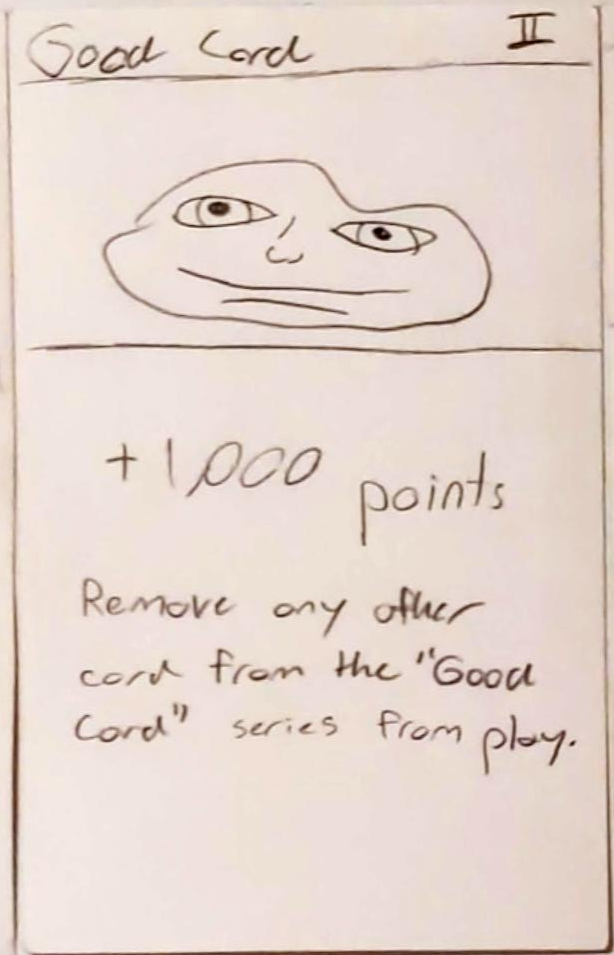 Good Card II
+1,000 points
Remove any other
card from the "Good
Card" series from play.